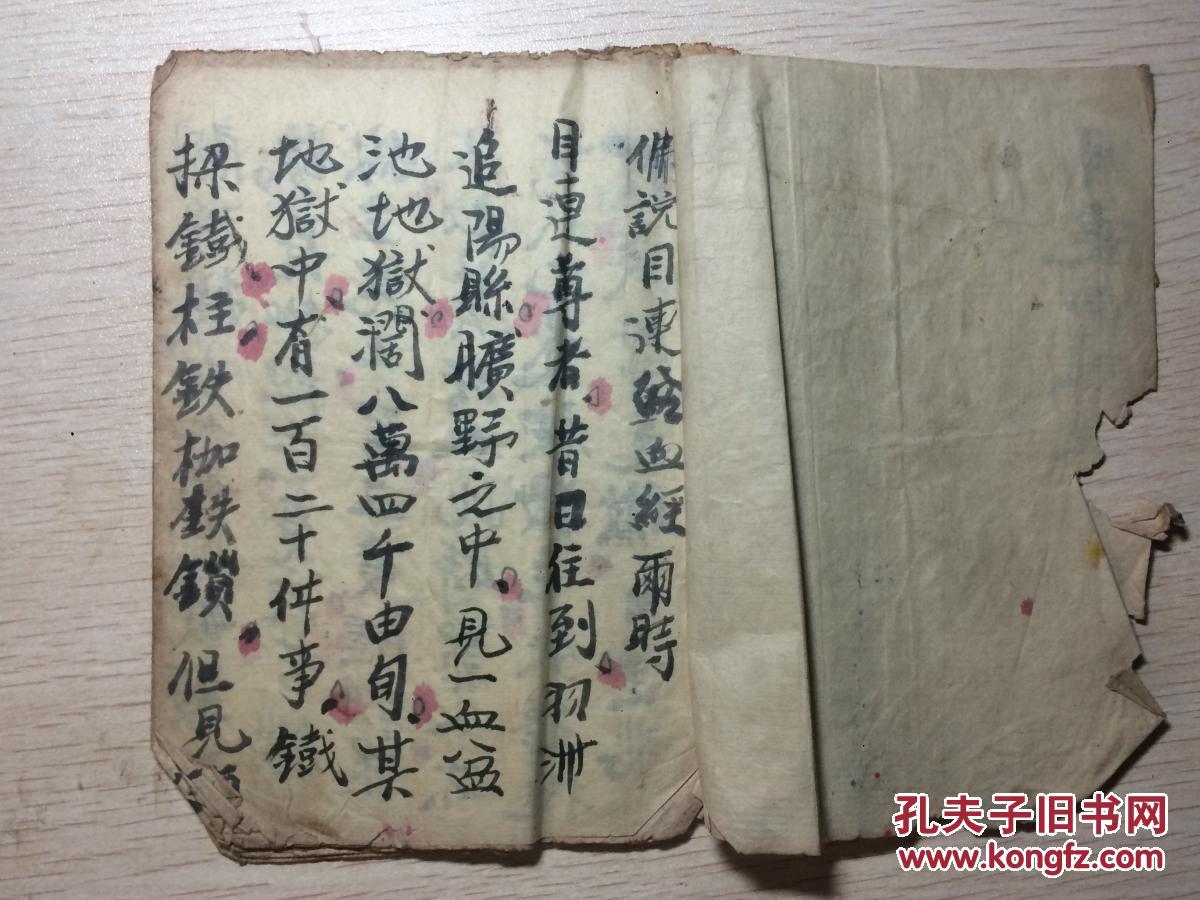 佛説目連𥁞血經爾時
目連尊者昔日徃到羽洲
追陽縣曠野之中見一血盆
池地獄濶八萬四千由旬其
地獄中有一百二十件事鐵
梁鐵柱鉄枷鉄鎖但見
孔夫子旧书网
www.kongfz.com